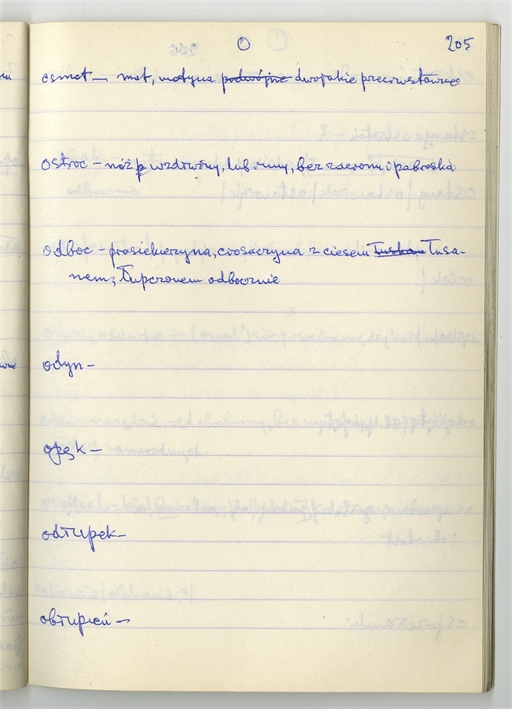 O 205
osmot — mot, motyna podwójne dwojakie przeciwstawne
ostroc – nóż wzdłużny, lub inny, bez zacrom i pabroska
odboc – prasiekierzyna, crosaczyna z ciesem Tuskan Tusa-
nem, Tupcronem odbocznie
odyn –
opęk –
odłupek –
obłupień –